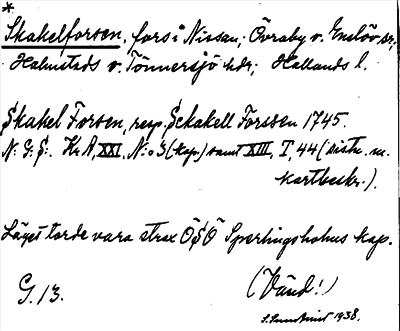 *
Skakelforsen, fors i Nissan, Övraby v. Enslöv sr.
Halmstads o. Tönnersjö hdr; Hallands l.
Skahel Forsen, resp. Schakell Forssen 1745.
N: G. S: Kr A, XXI, N:o 3 (kop.) samt XIII, I, 44 (distr. m.
kartbeskr.).
Läget torde vara strax ÖSÖ Sperlingsholms kap.
G. 13. (Vänd!)
1938.